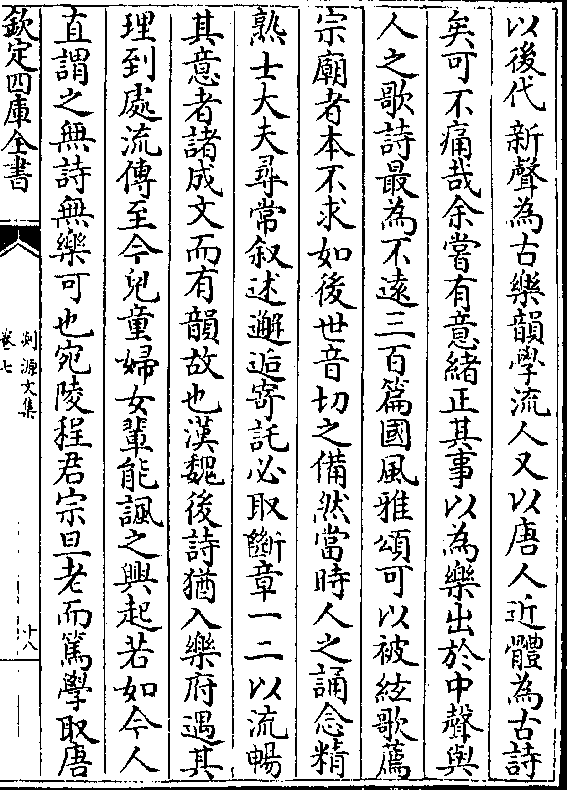 以後代新聲為古樂韻學流人又以唐人近體為古詩
矣可不痛哉余嘗有意緒正其事以為樂出於中聲與
人之歌詩最為不遠三百篇國風雅頌可以被絃歌薦
宗廟者本不求如後世音切之備然當時人之誦念精
熟士大夫尋常叙述邂逅寄託必取斷章一二以流暢
其意者諸成文而有韻故也漢魏後詩猶入樂府遇其
理到處流傳至今兒童婦女輩能諷之興起若如今人
直謂之無詩無樂可也宛陵程君宗旦老而篤學取唐
欽定四庫全書
剡源文集
卷七
十八